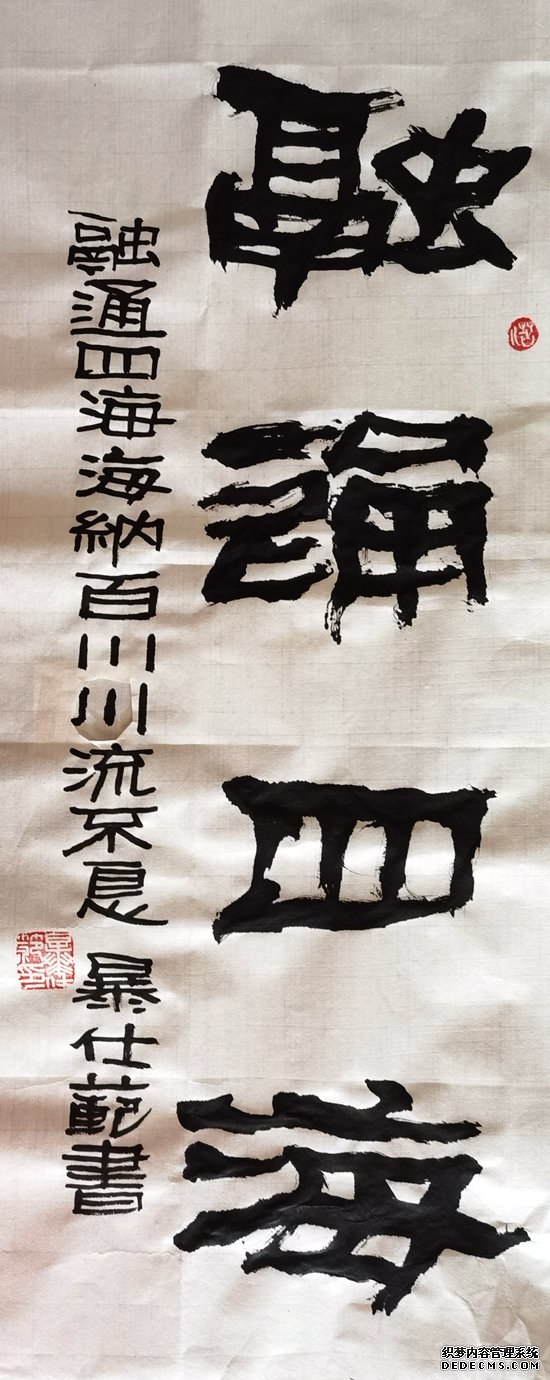 融通四海
融通四海海納百川川流不息
暴仕範書
织梦内容管理系统
DEDECMS.COM